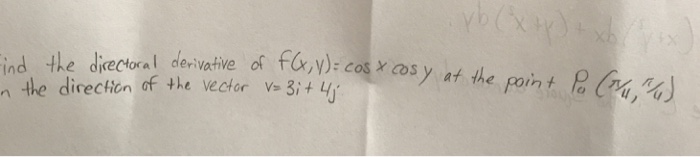 ind the directoral derivative of f(x,y) = cos x cos y at the point P₀ (π/4, π/4)
n the direction of the vector v= 3i + 4j